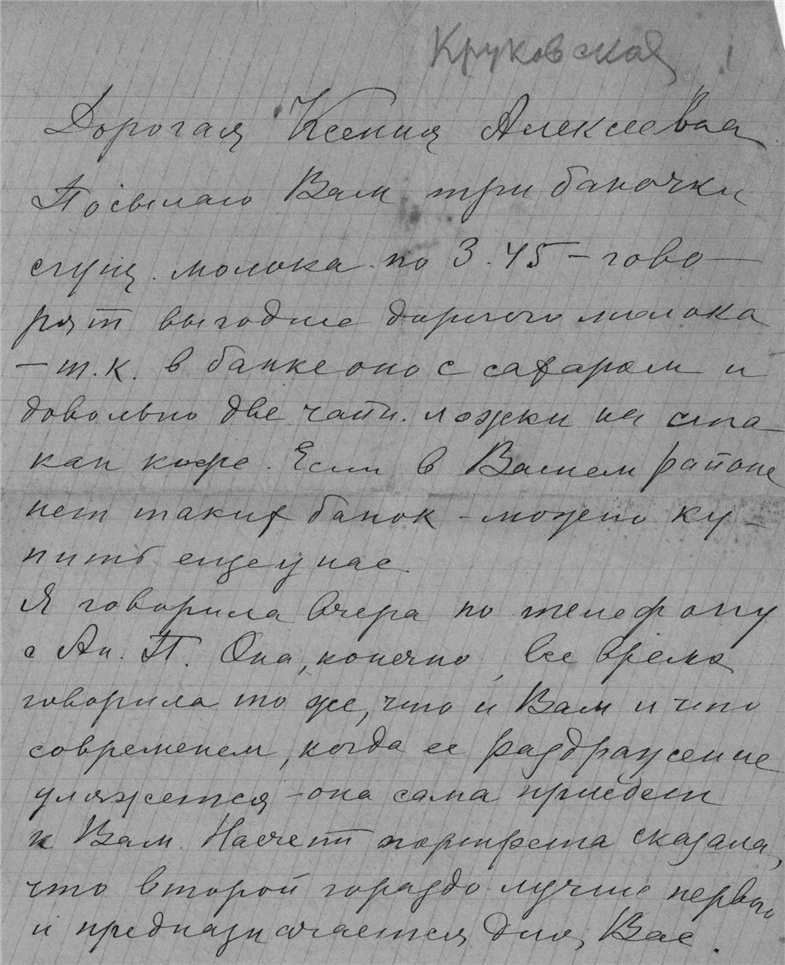 Круковская
Дорогая Ксения Алексеевна
Посылаю Вам три баночки
сгущ. молока по 3.45 – гово–
рят выгоднее дорогого молока
– т.к. в банке оно с сахаром и
довольно две чайн. ложки на ста–
кан кофе. Если в Вашем районе
нет таких банок – можно ку–
пить еще у нас.
Я говорила вчера по телефону
с Ан. П. Она, конечно, все время
говорила то же, что и Вам и что
современем, когда ее раздражение
уляжется – она сама приедет
к Вам. Насчет портрета сказала,
что второй гораздо лучше первого
и предназначается для Вас.